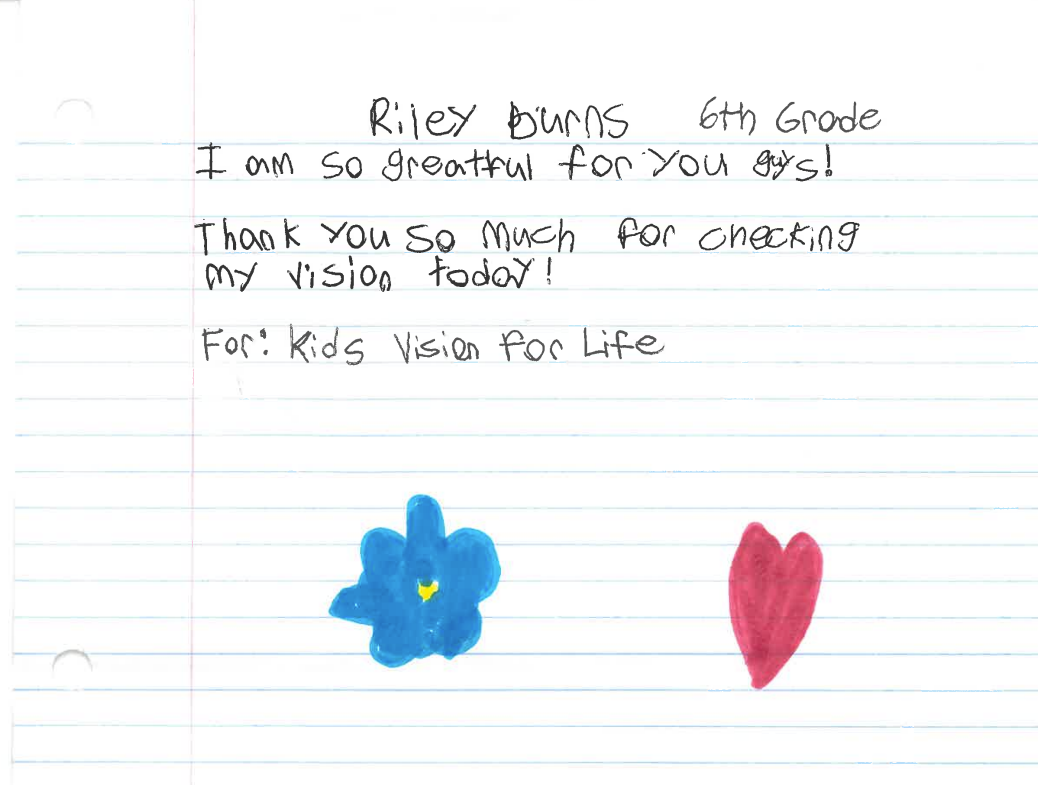 Riley Burns 6th Grade
I am so greatful for you guys!
Thank you so much for checking
my vision today!
For: Kids Vision for Life